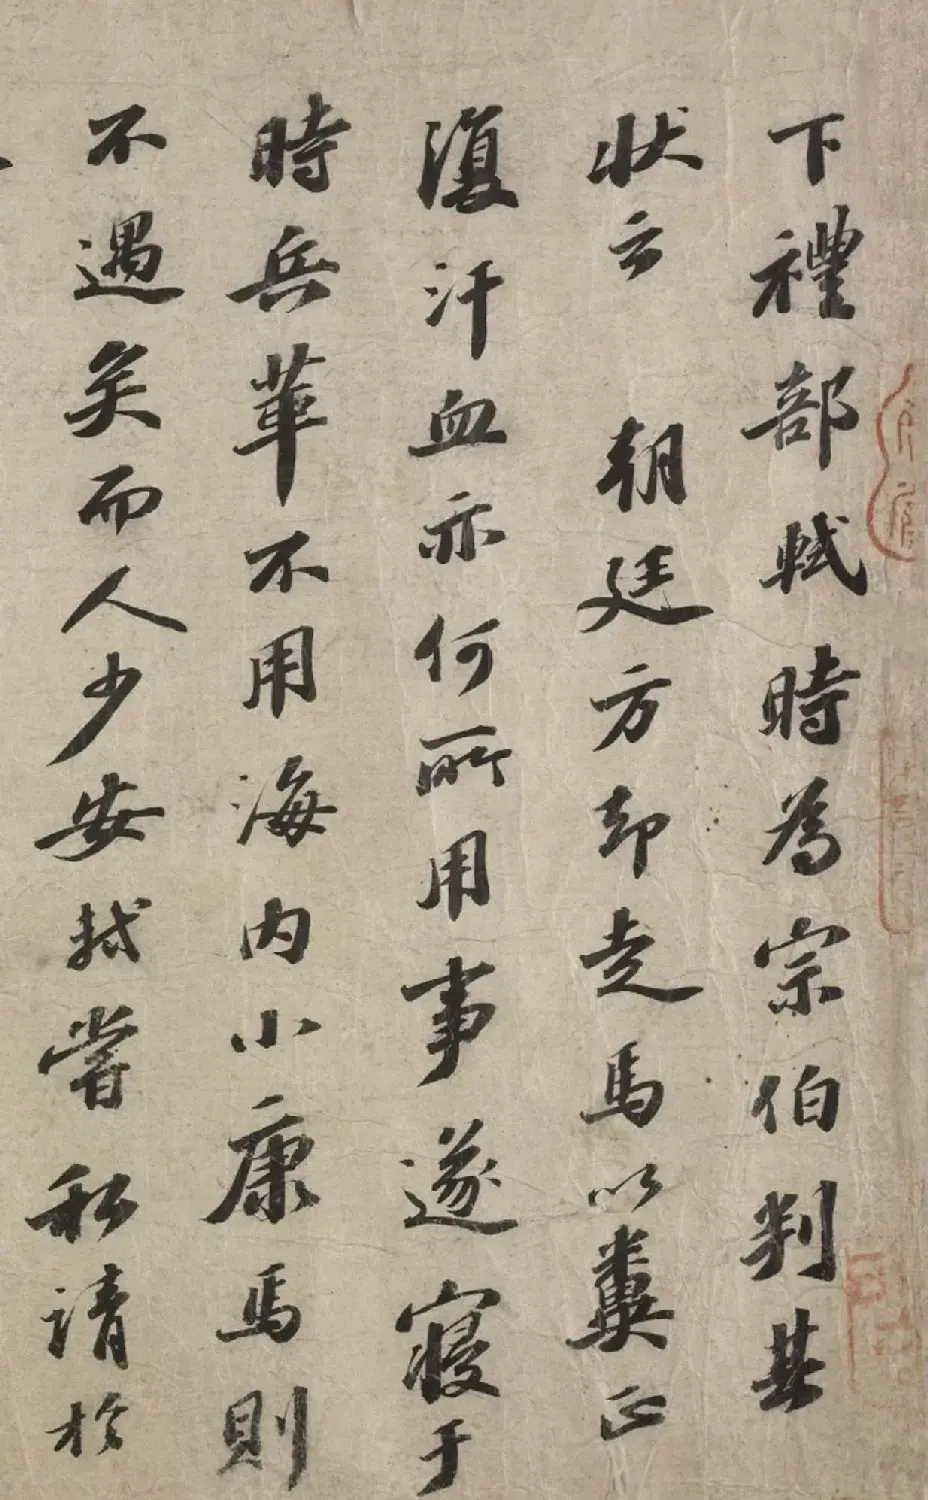 下禮部軾時為宗伯判其
狀云 朝廷方却走馬以糞正
復汗血亦何所用事遂寢于
時兵革不用海内小康馬則
不遇矣而人少安軾嘗私請於